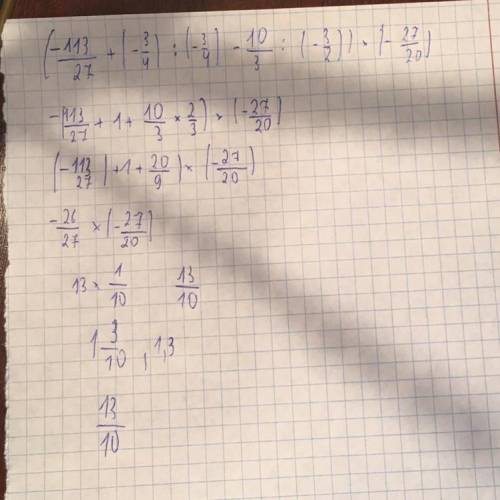 (-113/27 + (-3/4) : (-3/4) - 10/3 : (-3/2)) × (-27/20)
-(113/27 + 1 + 10/3 × 2/3) × (-27/20)
(-113/27) + 1 + 20/9) × (-27/20)
-26/27 × (-27/20)
13 × 1/10 13/10
1 3/10 , 1,3
13/10